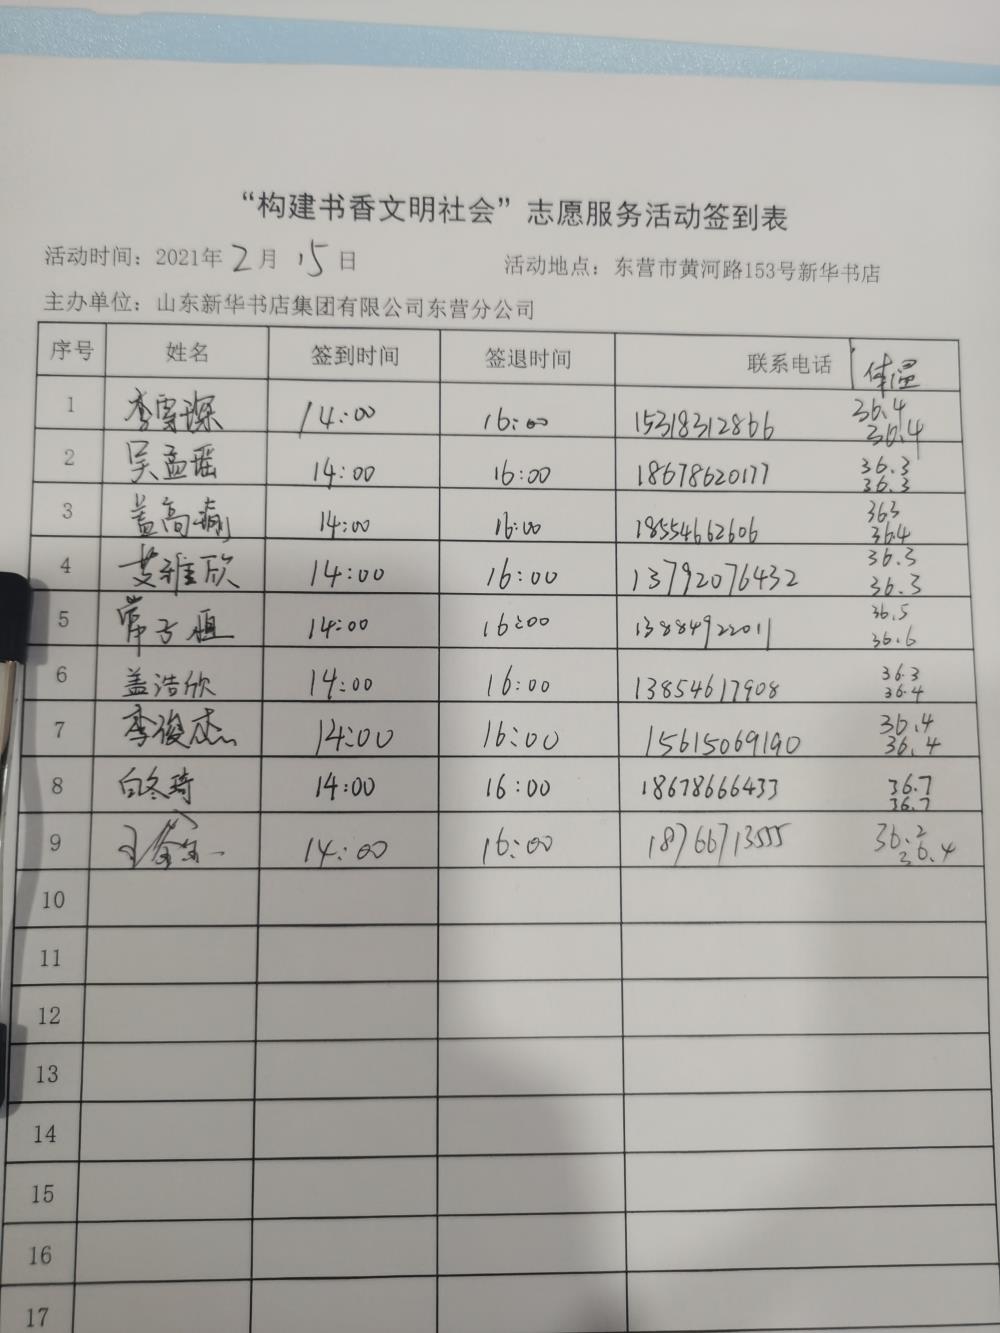 “构建书香文明社会”志愿服务活动签到表
活动时间：2021年2月15日 活动地点：东营市黄河路153号新华书店
主办单位：山东新华书店集团有限公司东营分公司
序号 姓名 签到时间 签退时间 联系电话 体温
1 李雪琛 14:00 16:00 15318312866 36.4 36.4
2 吴孟瑶 14:00 16:00 18678620177 36.3 36.3
3 盖高瑜 14:00 16:00 18554662606 363 36.4
4 艾雅欣 14:00 16:00 13792076432 36.3 36.3
5 常子恒 14:00 16:00 13884922011 36.5 36.6
6 盖浩欣 14:00 16:00 13854617908 36.3 36.4
7 李俊杰 14:00 16:00 15615069190 36.4 36.4
8 白冬琦 14:00 16:00 18678666433 36.7 36.7
9 14:00 16:00 18766713555 36.2 36.4
10
11
12
13
14
15
16
17